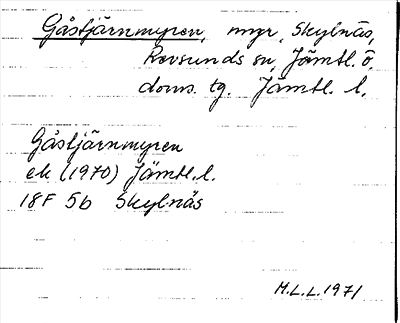 Gåstjärnmyren, myr, Skylnäs,
Revsunds sn, Jämtl. ö.
doms. tg. Jämtl. l.
Gåstjärnmyren
ek (1970) Jämtl. l.
18F 5b Skylnäs
M.L.L. 1971